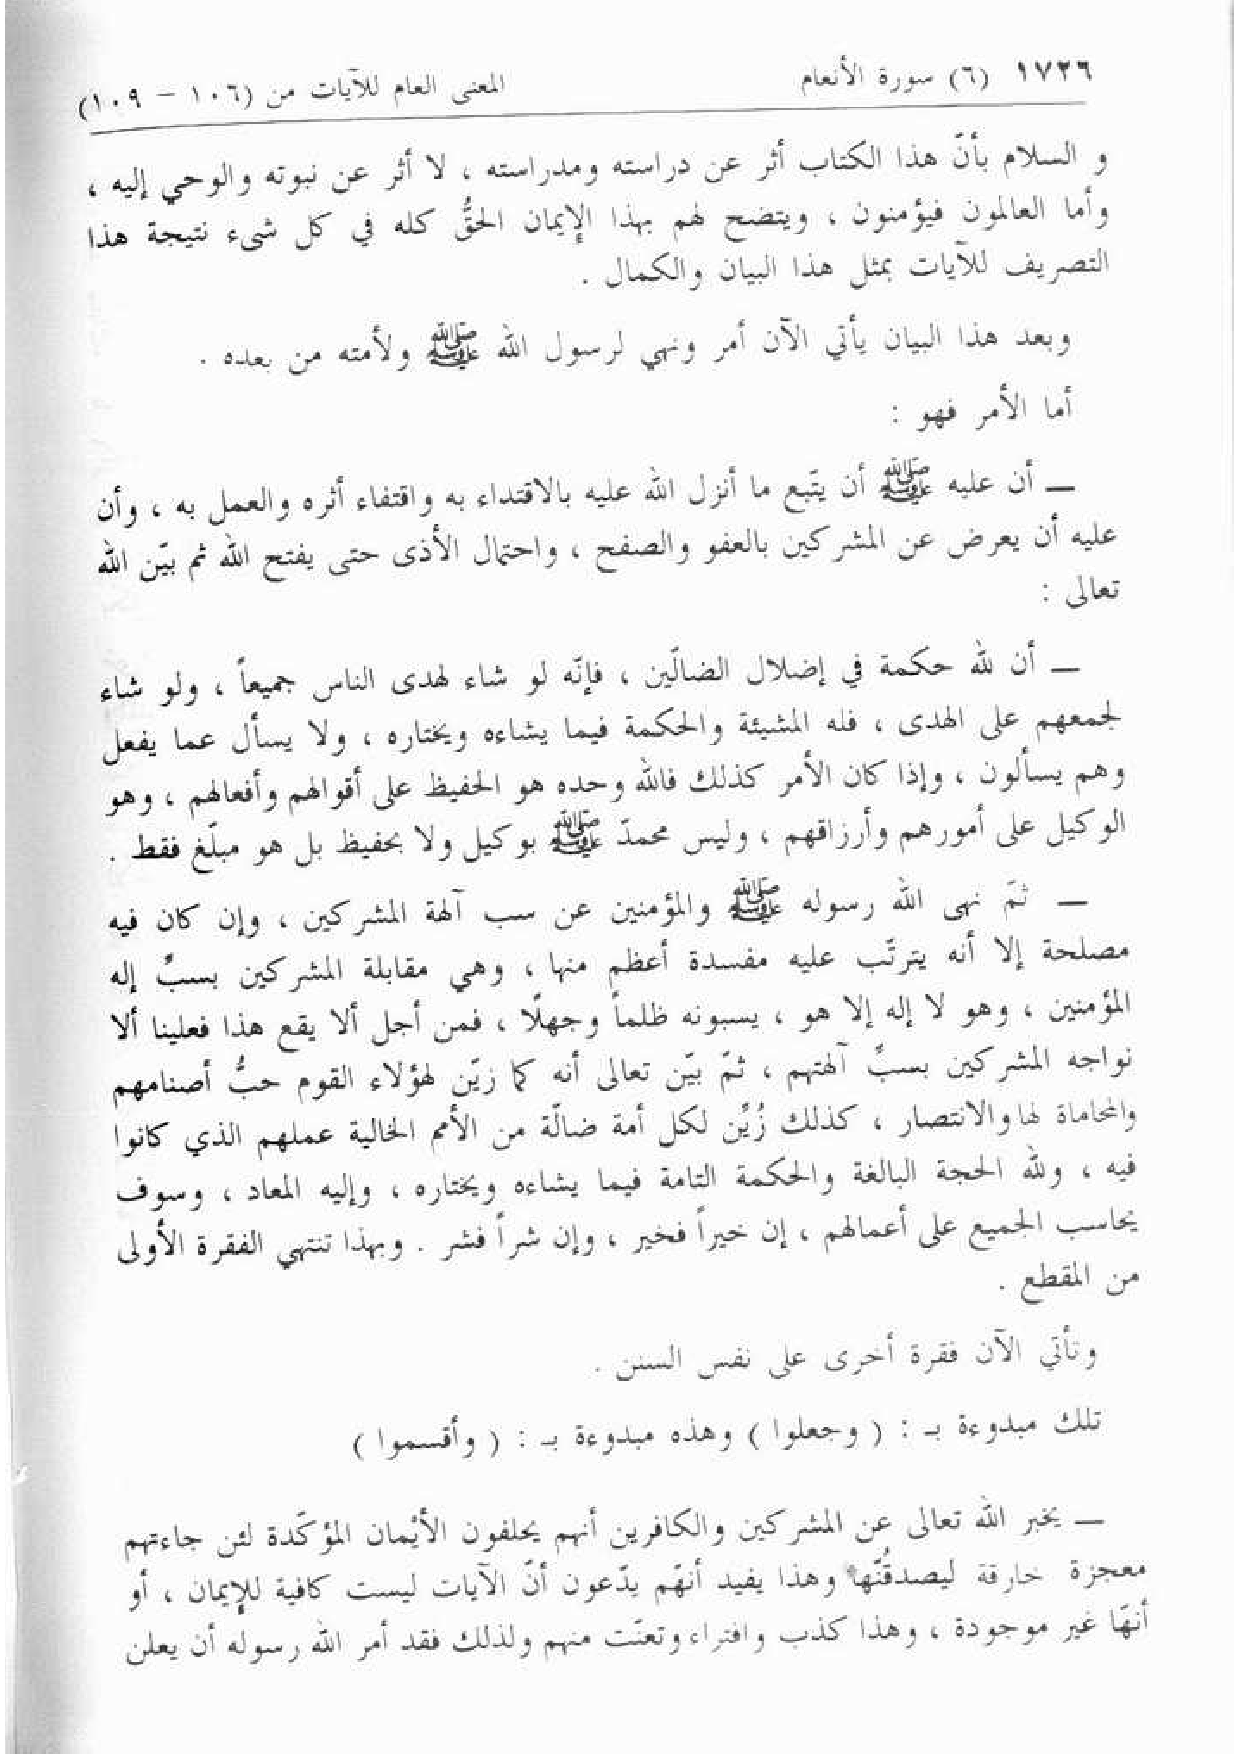 ١٧٢٦ (٦) سورة الأنعام المعنى العام للآيات من (١٠٦ – ١٠٩)
و السلام بأنّ هذا الكتاب أثر عن دراسته ومدراسته ، لا أثر عن نبوته والوحي إليه ،
وأما العالمون فيؤمنون ، ويتضح لهم بهذا الإيمان الحقُّ كله في كل شيء نتيجة هذا
التصريف للآيات بمثل هذا البيان والكمال .
وبعد هذا البيان يأتي الآن أمر ونهي لرسول الله ﷺ ولأمته من بعده .
أما الأمر فهو :
ــ أن عليه ﷺ أن يتّبع ما أنزل الله عليه بالاقتداء به واقتفاء أثره والعمل به ، وأن
عليه أن يعرض عن المشركين بالعفو والصفح ، واحتمال الأذى حتى يفتح الله ثم بيّن الله
تعالى :
ــ أن لله حكمة في إضلال الضالّين ، فإنّه لو شاء لهدى الناس جميعاً ، ولو شاء
لجمعهم على الهدى ، فله المشيئة والحكمة فيما يشاءه ويختاره ، ولا يسأل عما يفعل
وهم يسألون ، وإذا كان الأمر كذلك فالله وحده هو الحفيظ على أقوالهم وأفعالهم ، وهو
الوكيل على أمورهم وأرزاقهم ، وليس محمدّ ﷺ بوكيل ولا بحفيظ بل هو مبلّغ فقط .
ــ ثمّ نهى الله رسوله ﷺ والمؤمنين عن سب آلهة المشركين ، وإن كان فيه
مصلحة إلا أنه يترتّب عليه مفسدة أعظم منها ، وهي مقابلة المشركين بسبِّ إله
المؤمنين ، وهو لا إله إلا هو ، يسبونه ظلماً وجهلًا ، فمن أجل ألا يقع هذا فعلينا ألا
نواجه المشركين بسبِّ آلهتهم ، ثمّ بيّن تعالى أنه كما زيّن لهؤلاء القوم حبُّ أصنامهم
والمحاماة لها والانتصار ، كذلك زُيِّن لكل أمة ضالّة من الأمم الخالية عملهم الذي كانوا
فيه ، ولله الحجة البالغة والحكمة التامة فيما يشاءه ويختاره ، وإليه المعاد ، وسوف
يحاسب الجميع على أعمالهم ، إن خيراً فخير ، وإن شراً فشر . وبهذا تنتهي الفقرة الأولى
من المقطع .
وتأتي الآن فقرة أخرى على نفس السنن .
تلك مبدوءة بـ : ( وجعلوا ) وهذه مبدوءة بـ : ( وأقسموا )
ــ يخبر الله تعالى عن المشركين والكافرين أنهم يحلفون الأيْمان المؤكّدة لئن جاءتهم
معجزة خارقة ليصدقُنّها وهذا يفيد أنهّم يدّعون أنّ الآيات ليست كافية للإيمان ، أو
أنهّا غير موجودة ، وهذا كذب وافتراء وتعنّت منهم ولذلك فقد أمر الله رسوله أن يعلن